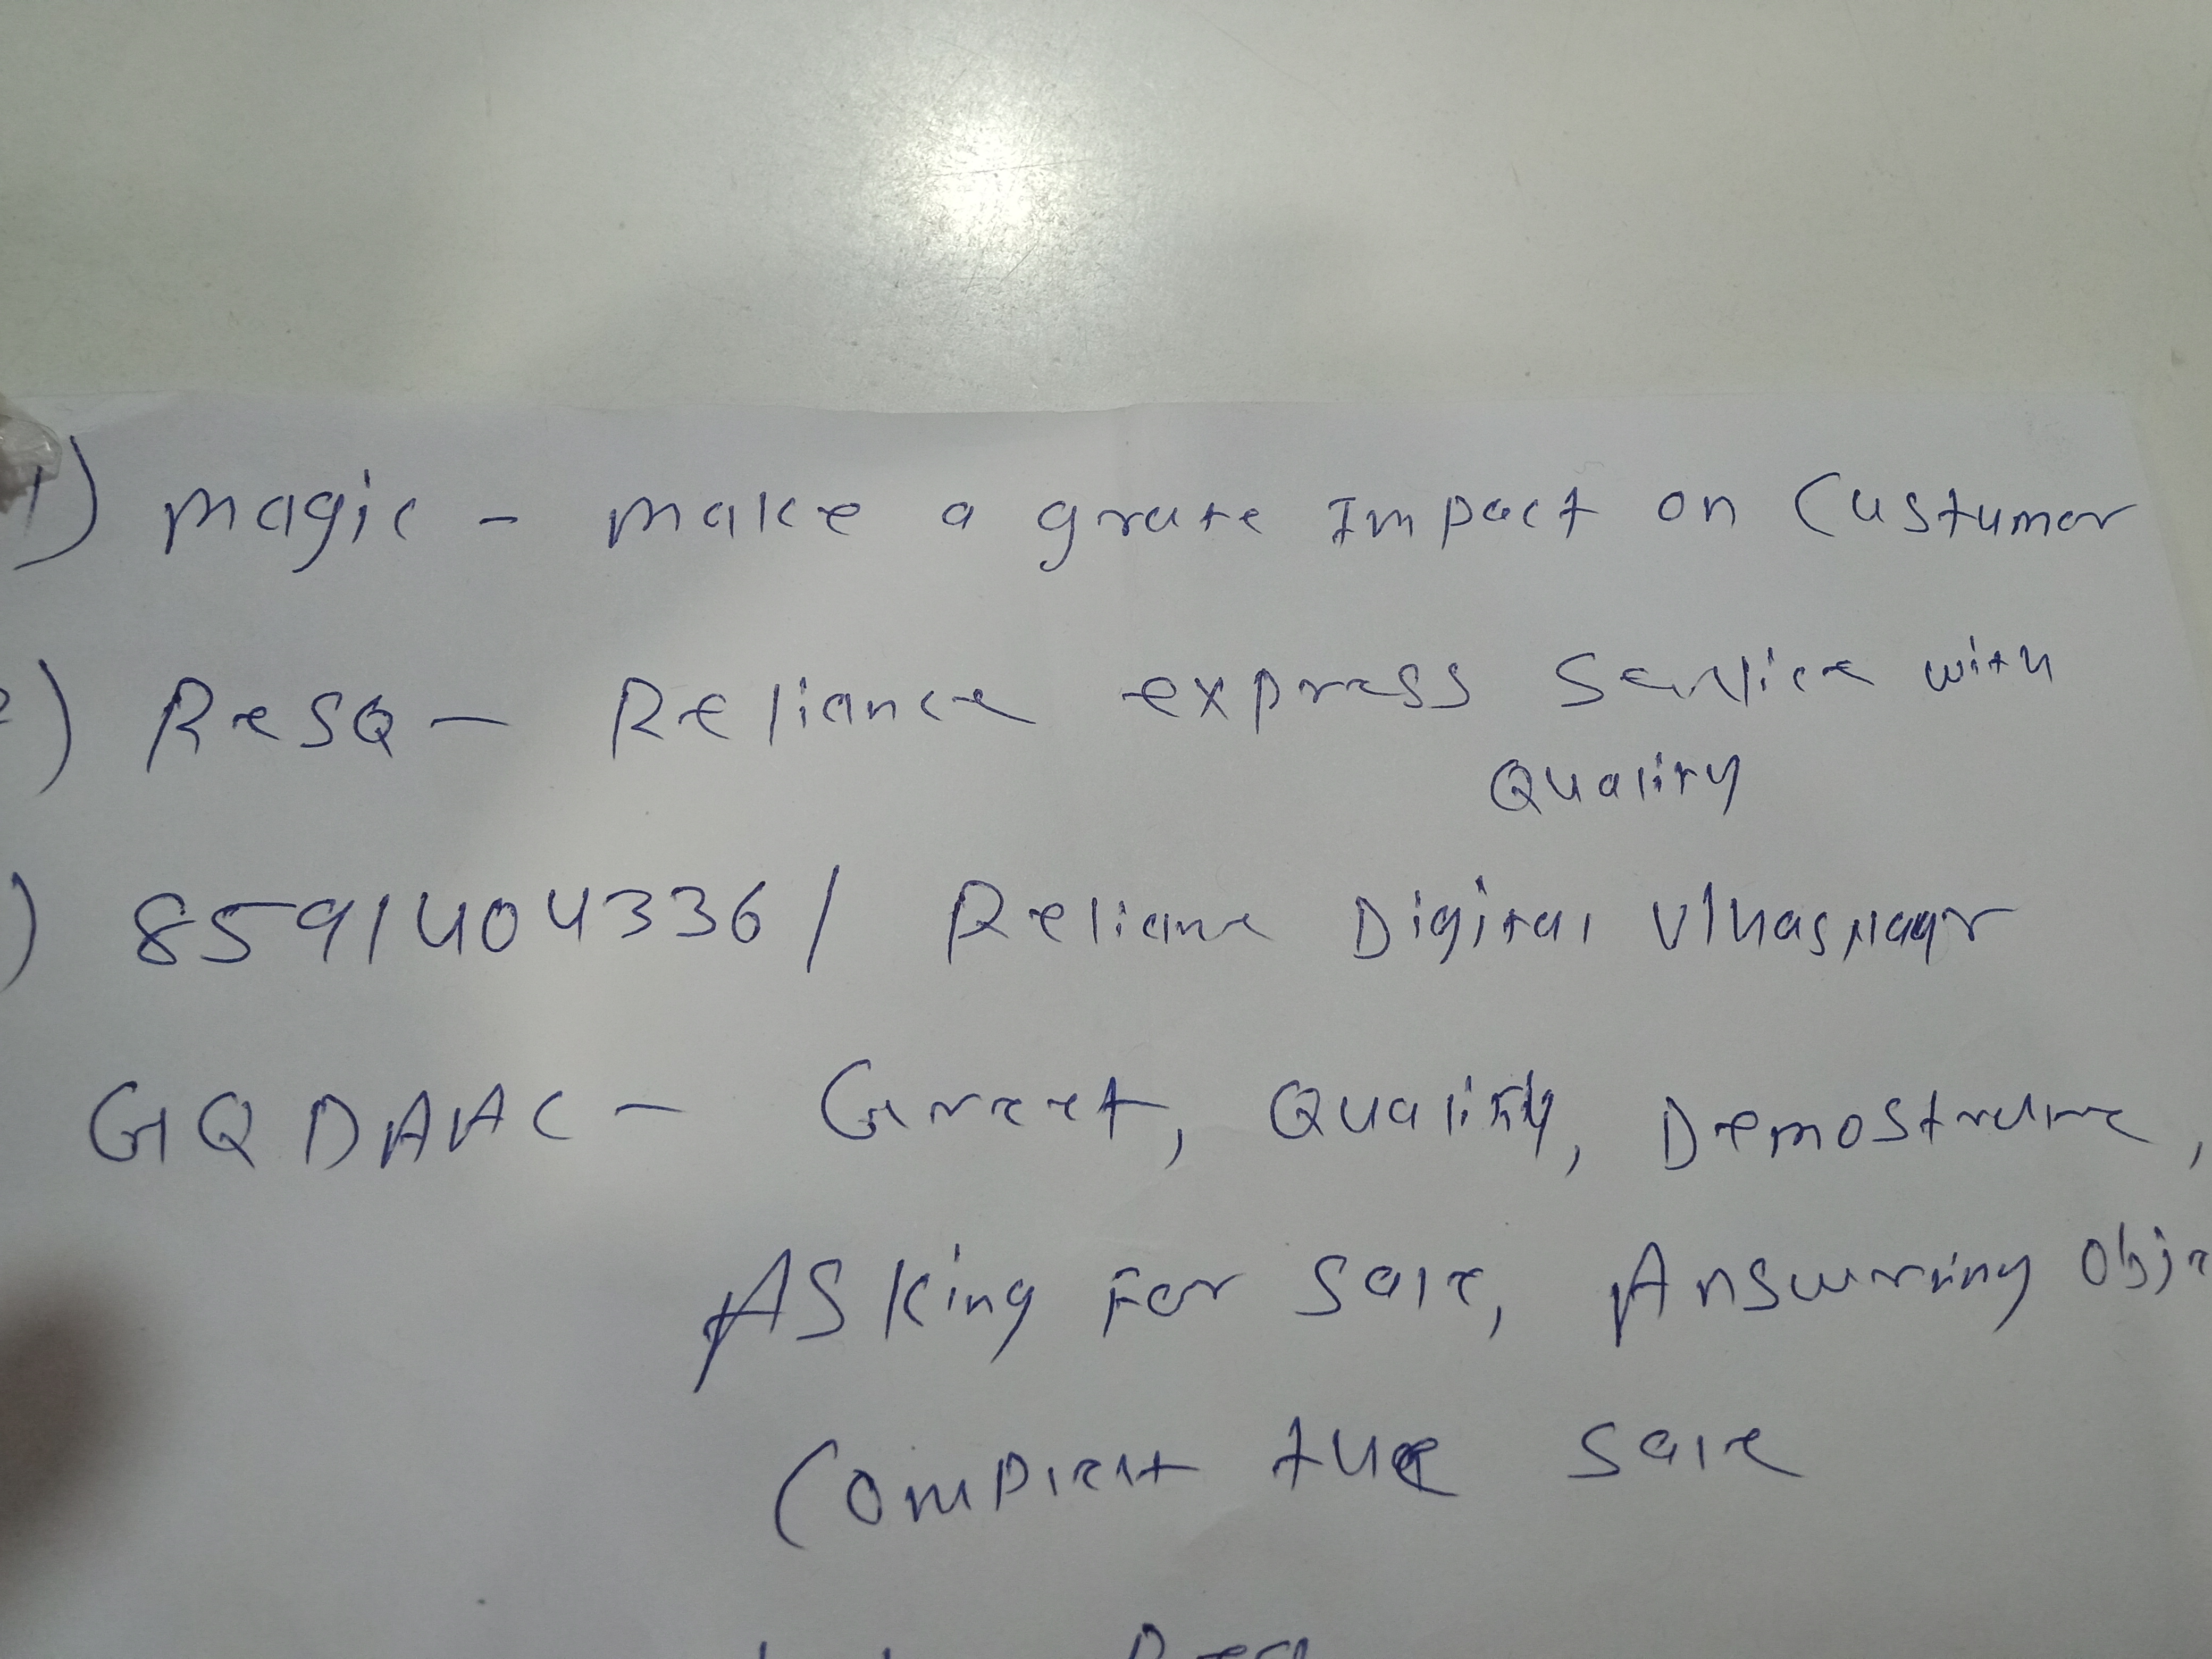 1) Magic - make a grate Impact on Custumer
2) ResQ - Reliance express Service with
Quality
) 8591404336 / Reliance Digital Ulhasnagr
GQDAAC - Greet, Quality, Demostrate,
Asking For Sale, Answering Obje
Compleat the Sale